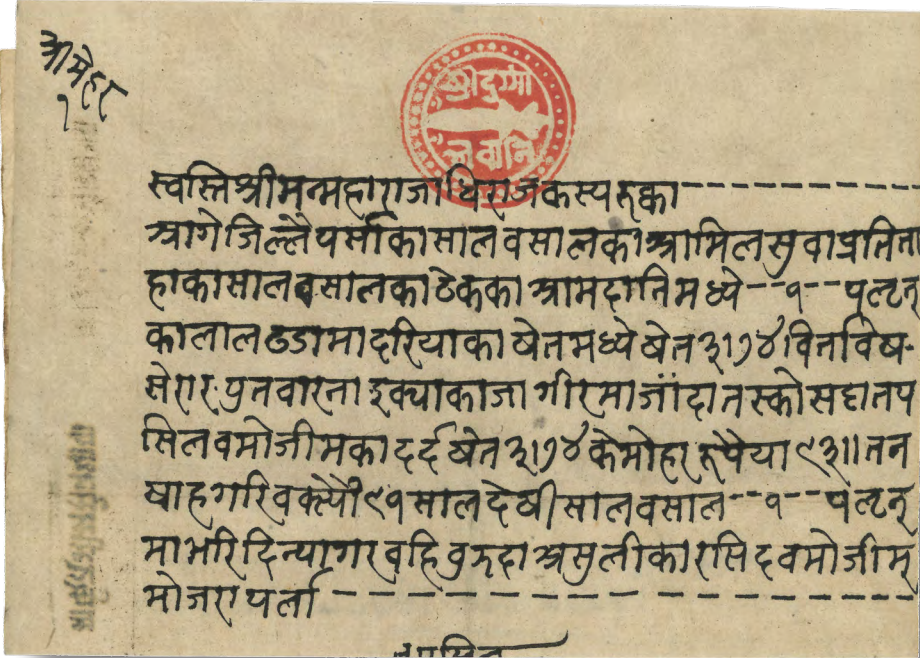 श्रीमेहर
१
श्रीदुर्गा
भवानि
स्वस्तिश्रीमन्महाराजाधिराजकस्यरुक्का
आगे जिल्लै पर्साका सालवसालका आमिल सुवा प्रति
हाका सालवसालका ठेकका आमदानि मध्ये १ पल्टन्
का लाल ढडामा दरियाका षेत मध्ये षेत ३।७४। वितविष-
सेरार पुनवार नाइक्याका जागीरमा जांदा तस्को सट्टा तप
सिलवमोजीमका दर्द षेत ३।७४ के मोहारूपैया ९३॥ तन
षाह गरि वक्स्यौ ९१ सालदेषी सालवसाल १ पल्टन्
मा भरिदिन्या गर वहिवुझदा असुलीका रसिदवमोजीम्
मोजरा पर्ला